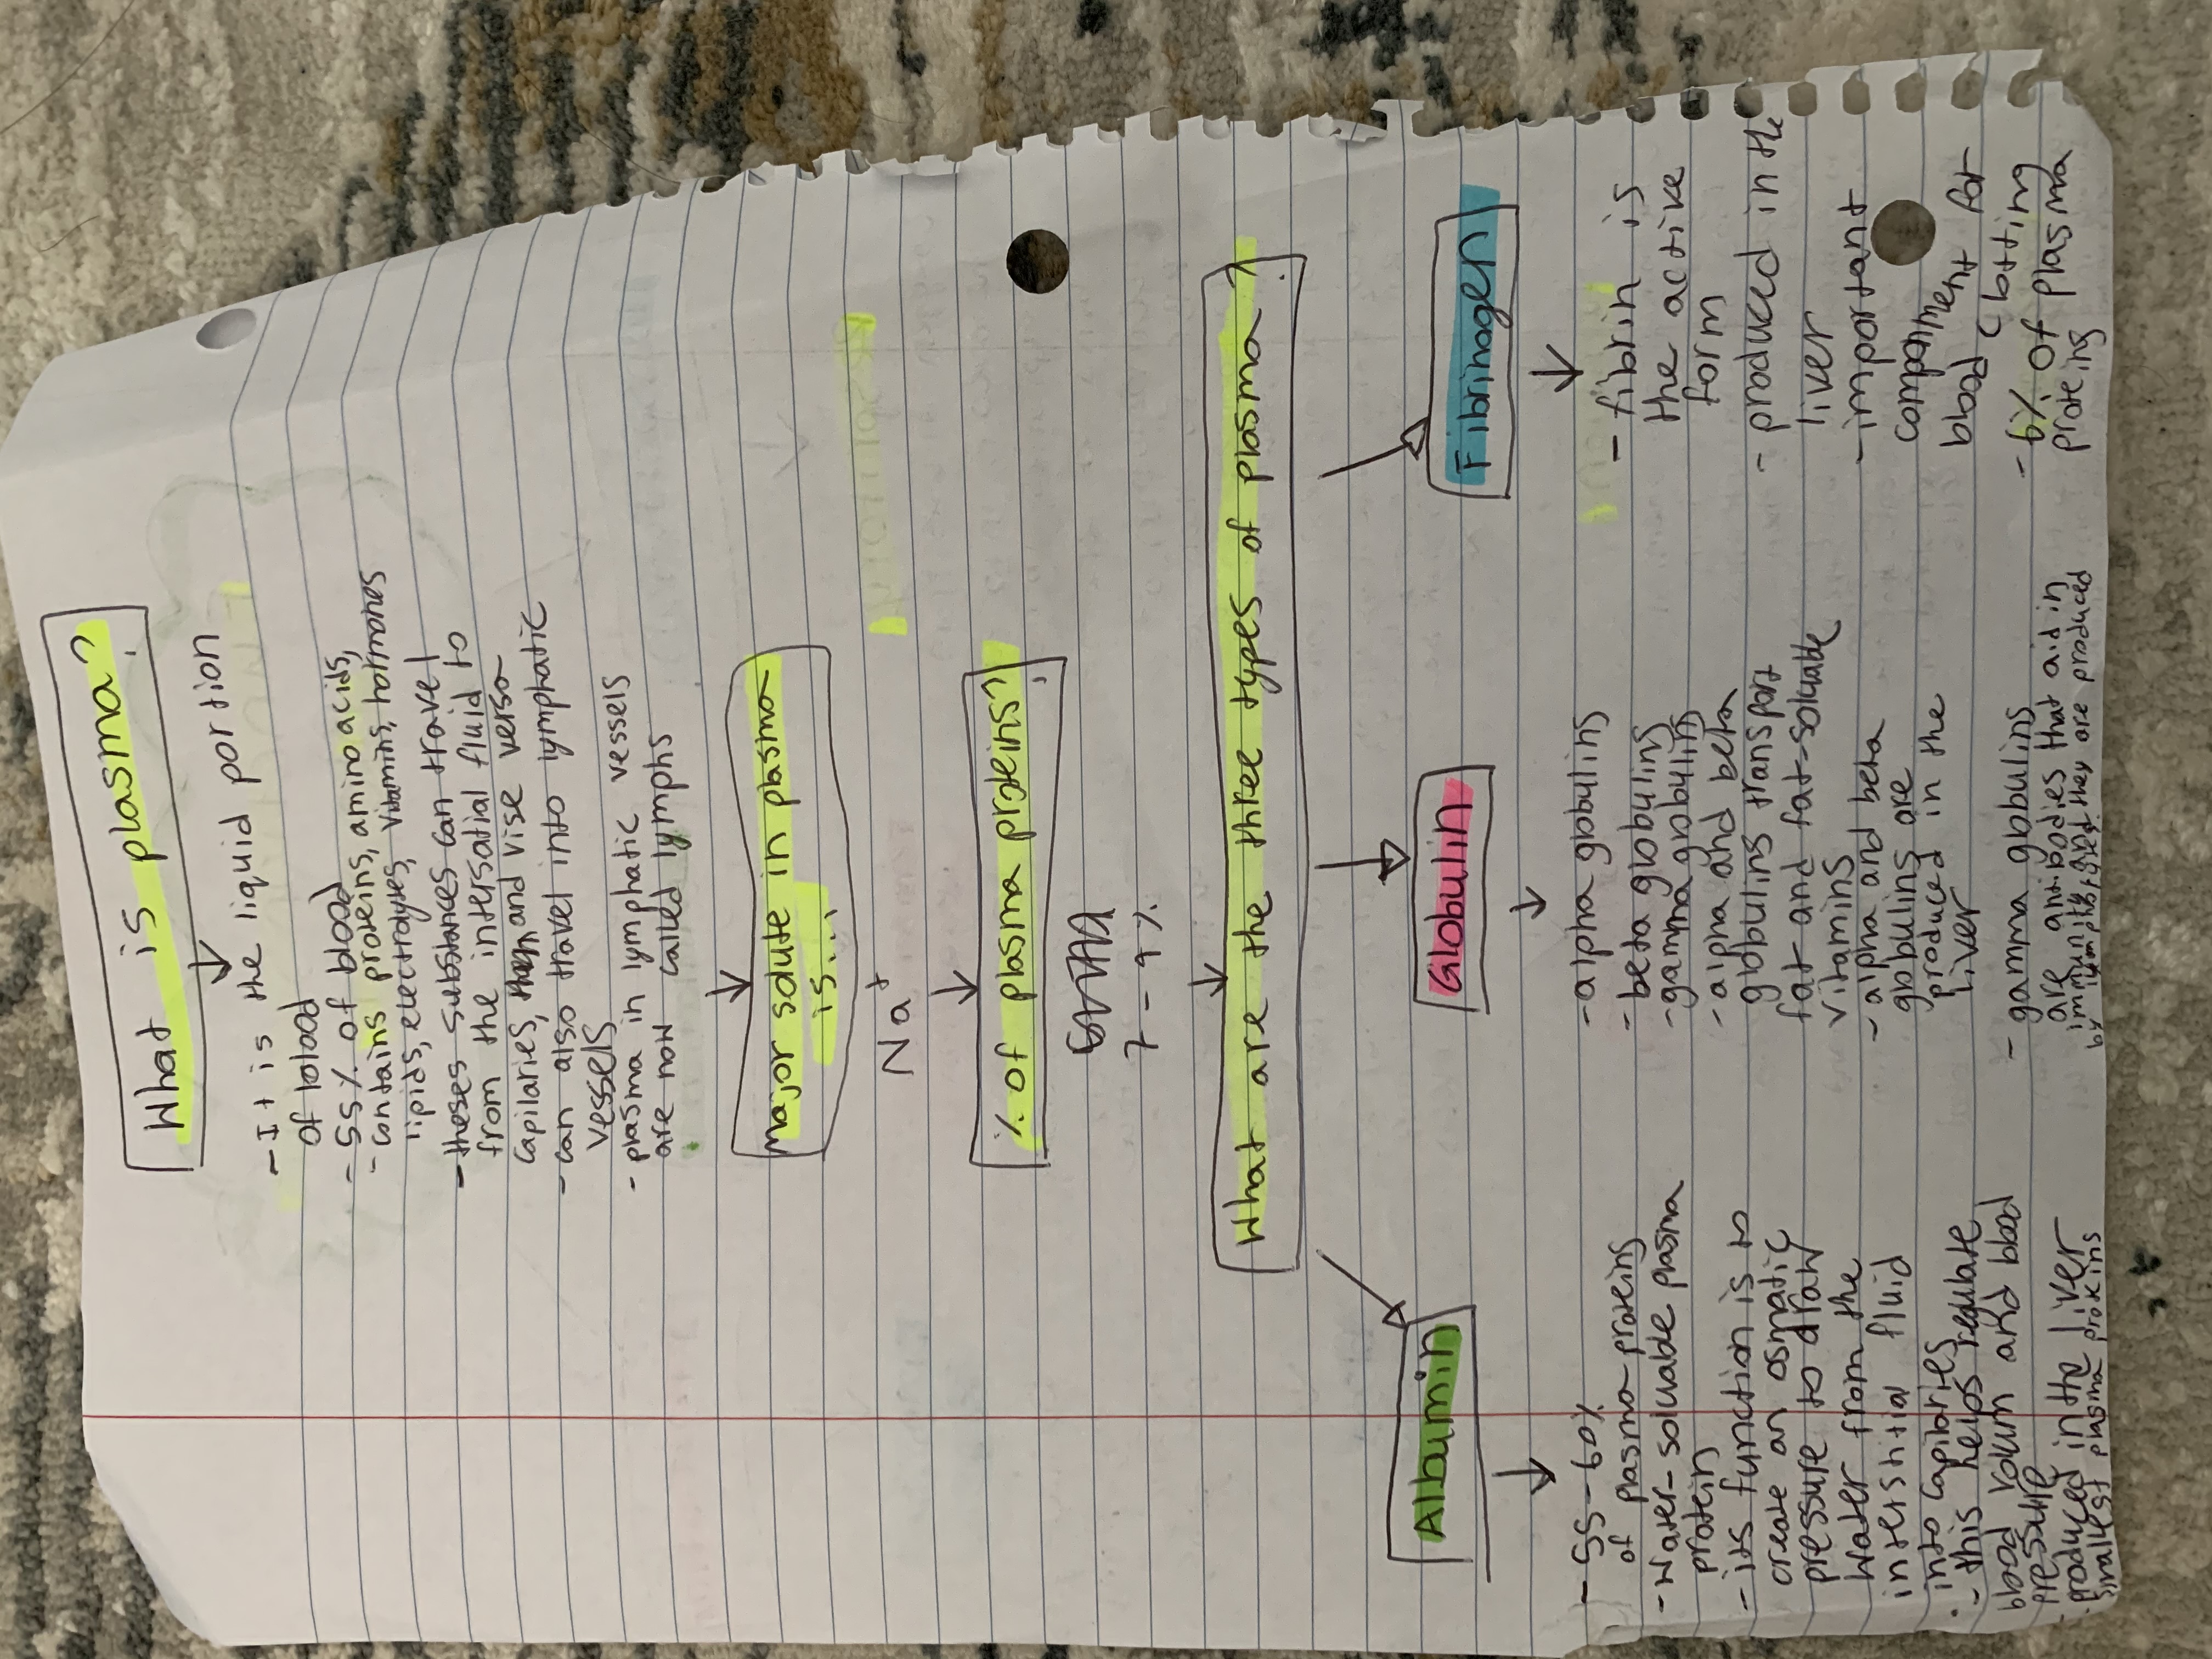 What is plasma?
- It is the liquid portion
of blood
- 55% of blood
- contains proteins, amino acids,
lipids, electroyes, vitamins, hormones
- theses substances can travel
from the intersatial fluid to
capilaries, and vise versa
- can also travel into lymphatic
vessels
- plasma in lymphatic vessels
are now called lymphs
major solute in plasma
is...
Na+
% of plasma proteins?
7-9%
What are the three types of plasma?
Albumin
- 55-60%
of plasma proteins
- Water-soluable plasma
protein
- its function is to
create an osmatic
pressure to draw
water from the
interstitial fluid
into capilaries
- this helps regulate
blood volum and blood
pressure
- produced in the liver
- smallest plasma proteins
Globulin
- alpha globulins
- beta globulins
- gamma globulins
- alpha and beta
globulins transport
fat and fat-soluable
vitamins
- alpha and beta
globulins are
produced in the
liver
- gamma globulins
are antibodies that aid in
immunity and they are produced
by
Fibrinogen
- fibrin is
the active
form
- produced in the
liver
- important
componment for
blood clotting
- 6% of plasma
proteins